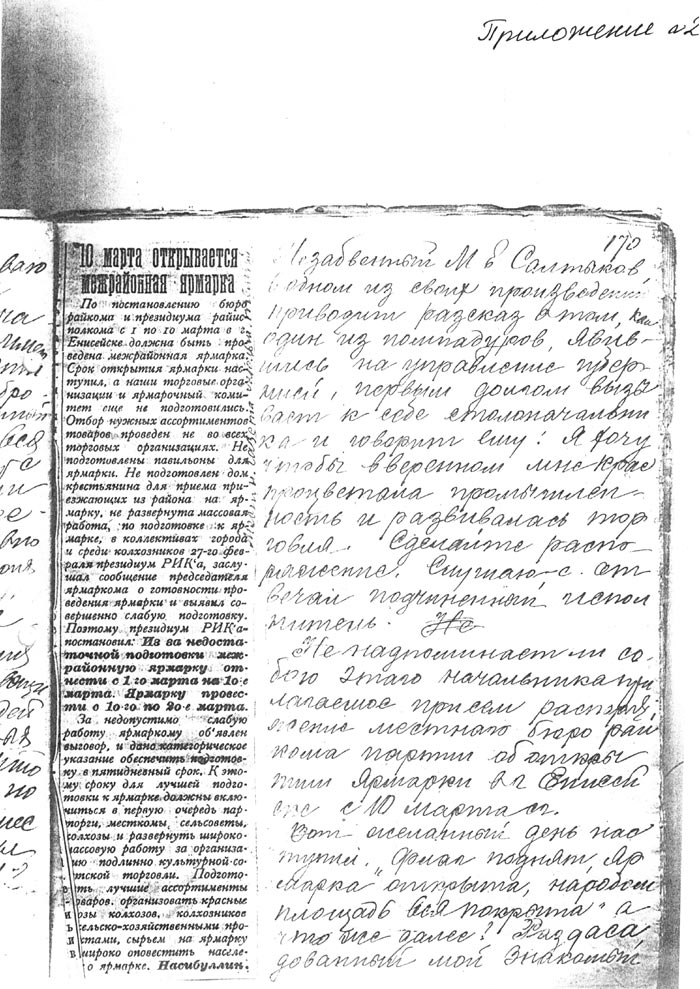 Приложение №2
170
10 марта открывается
межрайонная ярмарка
По постановлению бюро
райкома и президиума райис-
полкома с 1 по 10 марта в г.
Енисейске должна быть про
ведена межрайонная ярмарка.
Срок открытия ярмарки нас-
тупил, а наши торговые орга-
низации и ярмарочный коми-
тет еще не подготовились.
Отбор нужных ассортиментов
товаров проведен не во всех
торговых организациях. Не
подготовлены павильоны для
ярмарки. Не подготовлен дом
крестьянина для приема при-
езжающих из района на яр-
марку, не развернута массовая
работа, по подготовке к яр-
марке, в коллективах города
и среди колхозников 27-го фев-
раля президиум РИК'а, заслу-
шал сообщение председателя
ярмаркома о готовности про-
ведения ярмарки и выявил со-
вершенно слабую подготовку.
Поэтому президиум РИК'а-
постановил: Из ва недоста-
точной подготовки меж-
районную ярмарку от-
нести с 1-го марта на 10-е
марта. Ярмарку провес-
ти с 10-го по 20-е марта.
За недопустимо слабую
работу ярмаркому об'явлен
выговор, и дано категорическое
указание обеспечить подготов-
ку в пятидневный срок. К это
му сроку для лучшей подго-
товки к ярмарке должны вклю-
читься в первую очередь пар-
торги, месткомы, сельсоветы,
колхозы и развернуть широко-
массовую работу за организа-
цию подлинно культурной со-
тской торговли. Подгото-
ть лучшие ассортименты
оваров, организовать красные
озы колхозов, колхозников
ельско-хозяйственными про-
тами, сырьем на ярмарку
широко оповестить населе-
о ярмарке. Насибуллин.
Незабвенный М Е Салтыков,
в одном из своих произведений
приводит разсказ о том, как
один из помпадуров, явив-
шись на управление губер-
нией, первым долгом вызы
вает к себе столоначальни
ка и говорит ему: Я хочу
чтобы в вверенном мне крае
процветала промышлен-
ность и развивалась тор
говля. Сделайте распо-
ряжение. Слушаю-с. от
вечал подчиненный испол
нитель. Не
Не надпоминает ли со-
бою этого начальника при
лагаемое при сем распоря
жение местнаго бюро рай
кома партии об откры
тии Ярмарки в г Енисей
ске с 10 марта сг.
Вот желанный день нас
тупил. Флаг поднят, Яр
марка" открыта, народом
площадь вся покрыта" а
что же далее? Раздоса
дованный мой знакомый